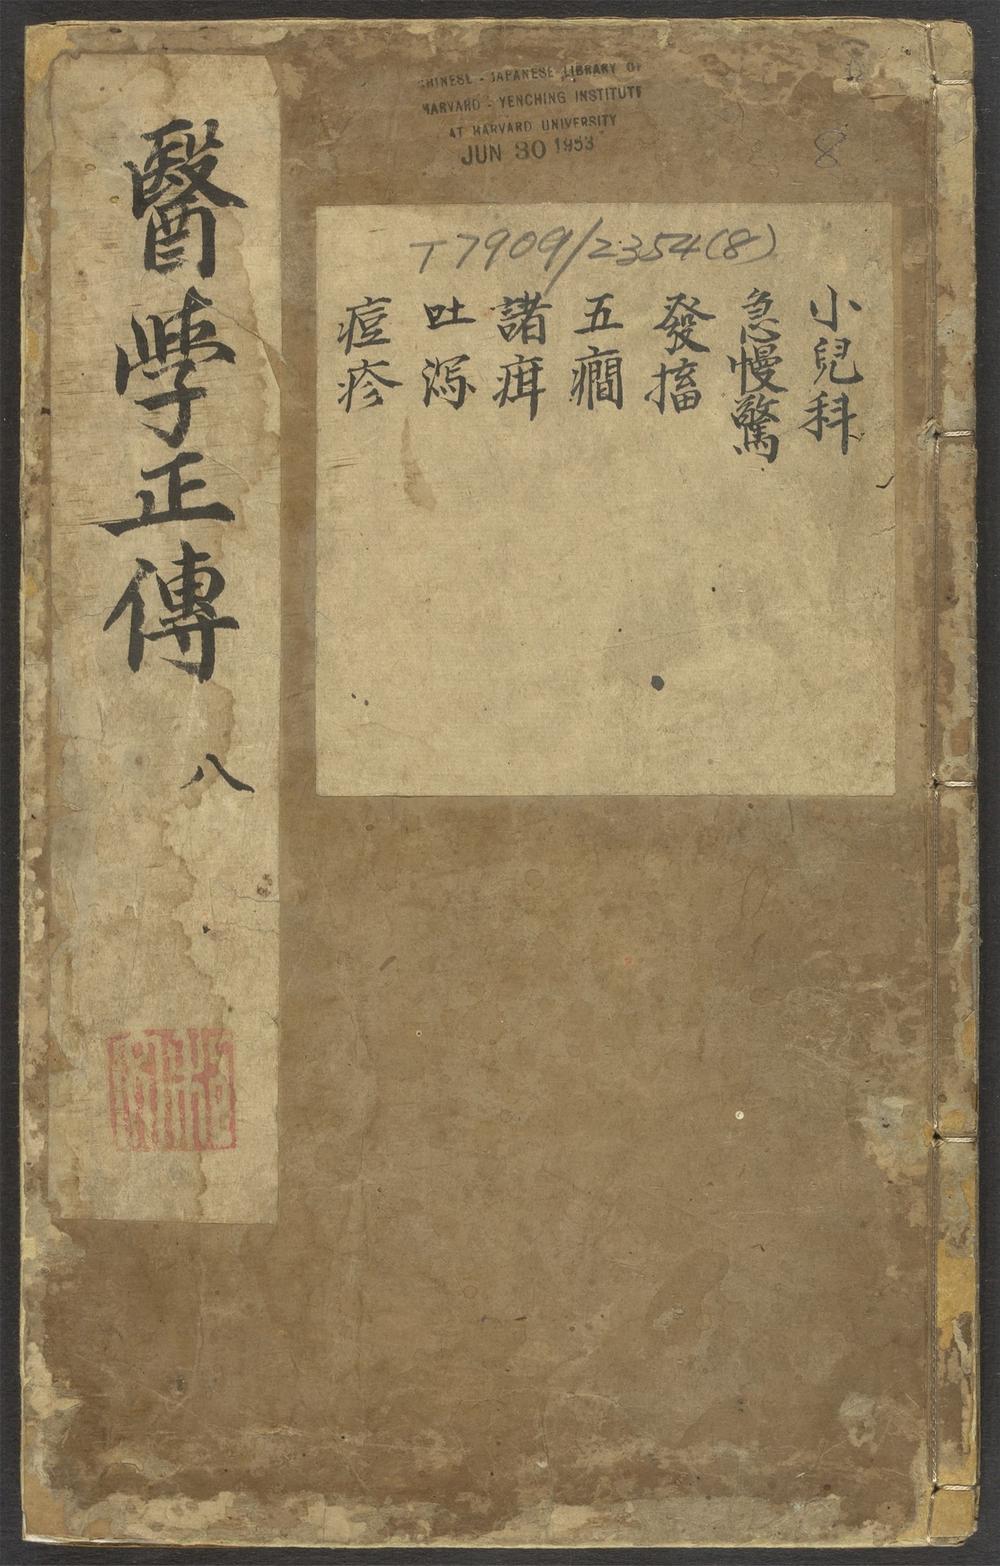 CHINESE - JAPANESE LIBRARY OF
HARVARD - YENCHING INSTITUTE
AT HARVARD UNIVERSITY
JUN 30 1953
8
T7909/2354(8)
小兒科
急慢驚
發搐
五癇
諸疳
吐瀉
痘疹
醫學正傳
八